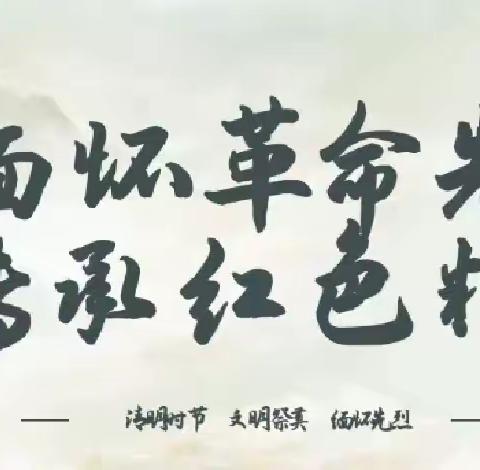 缅怀革命先
传承红色精
清明时节 文明祭奠 缅怀先烈